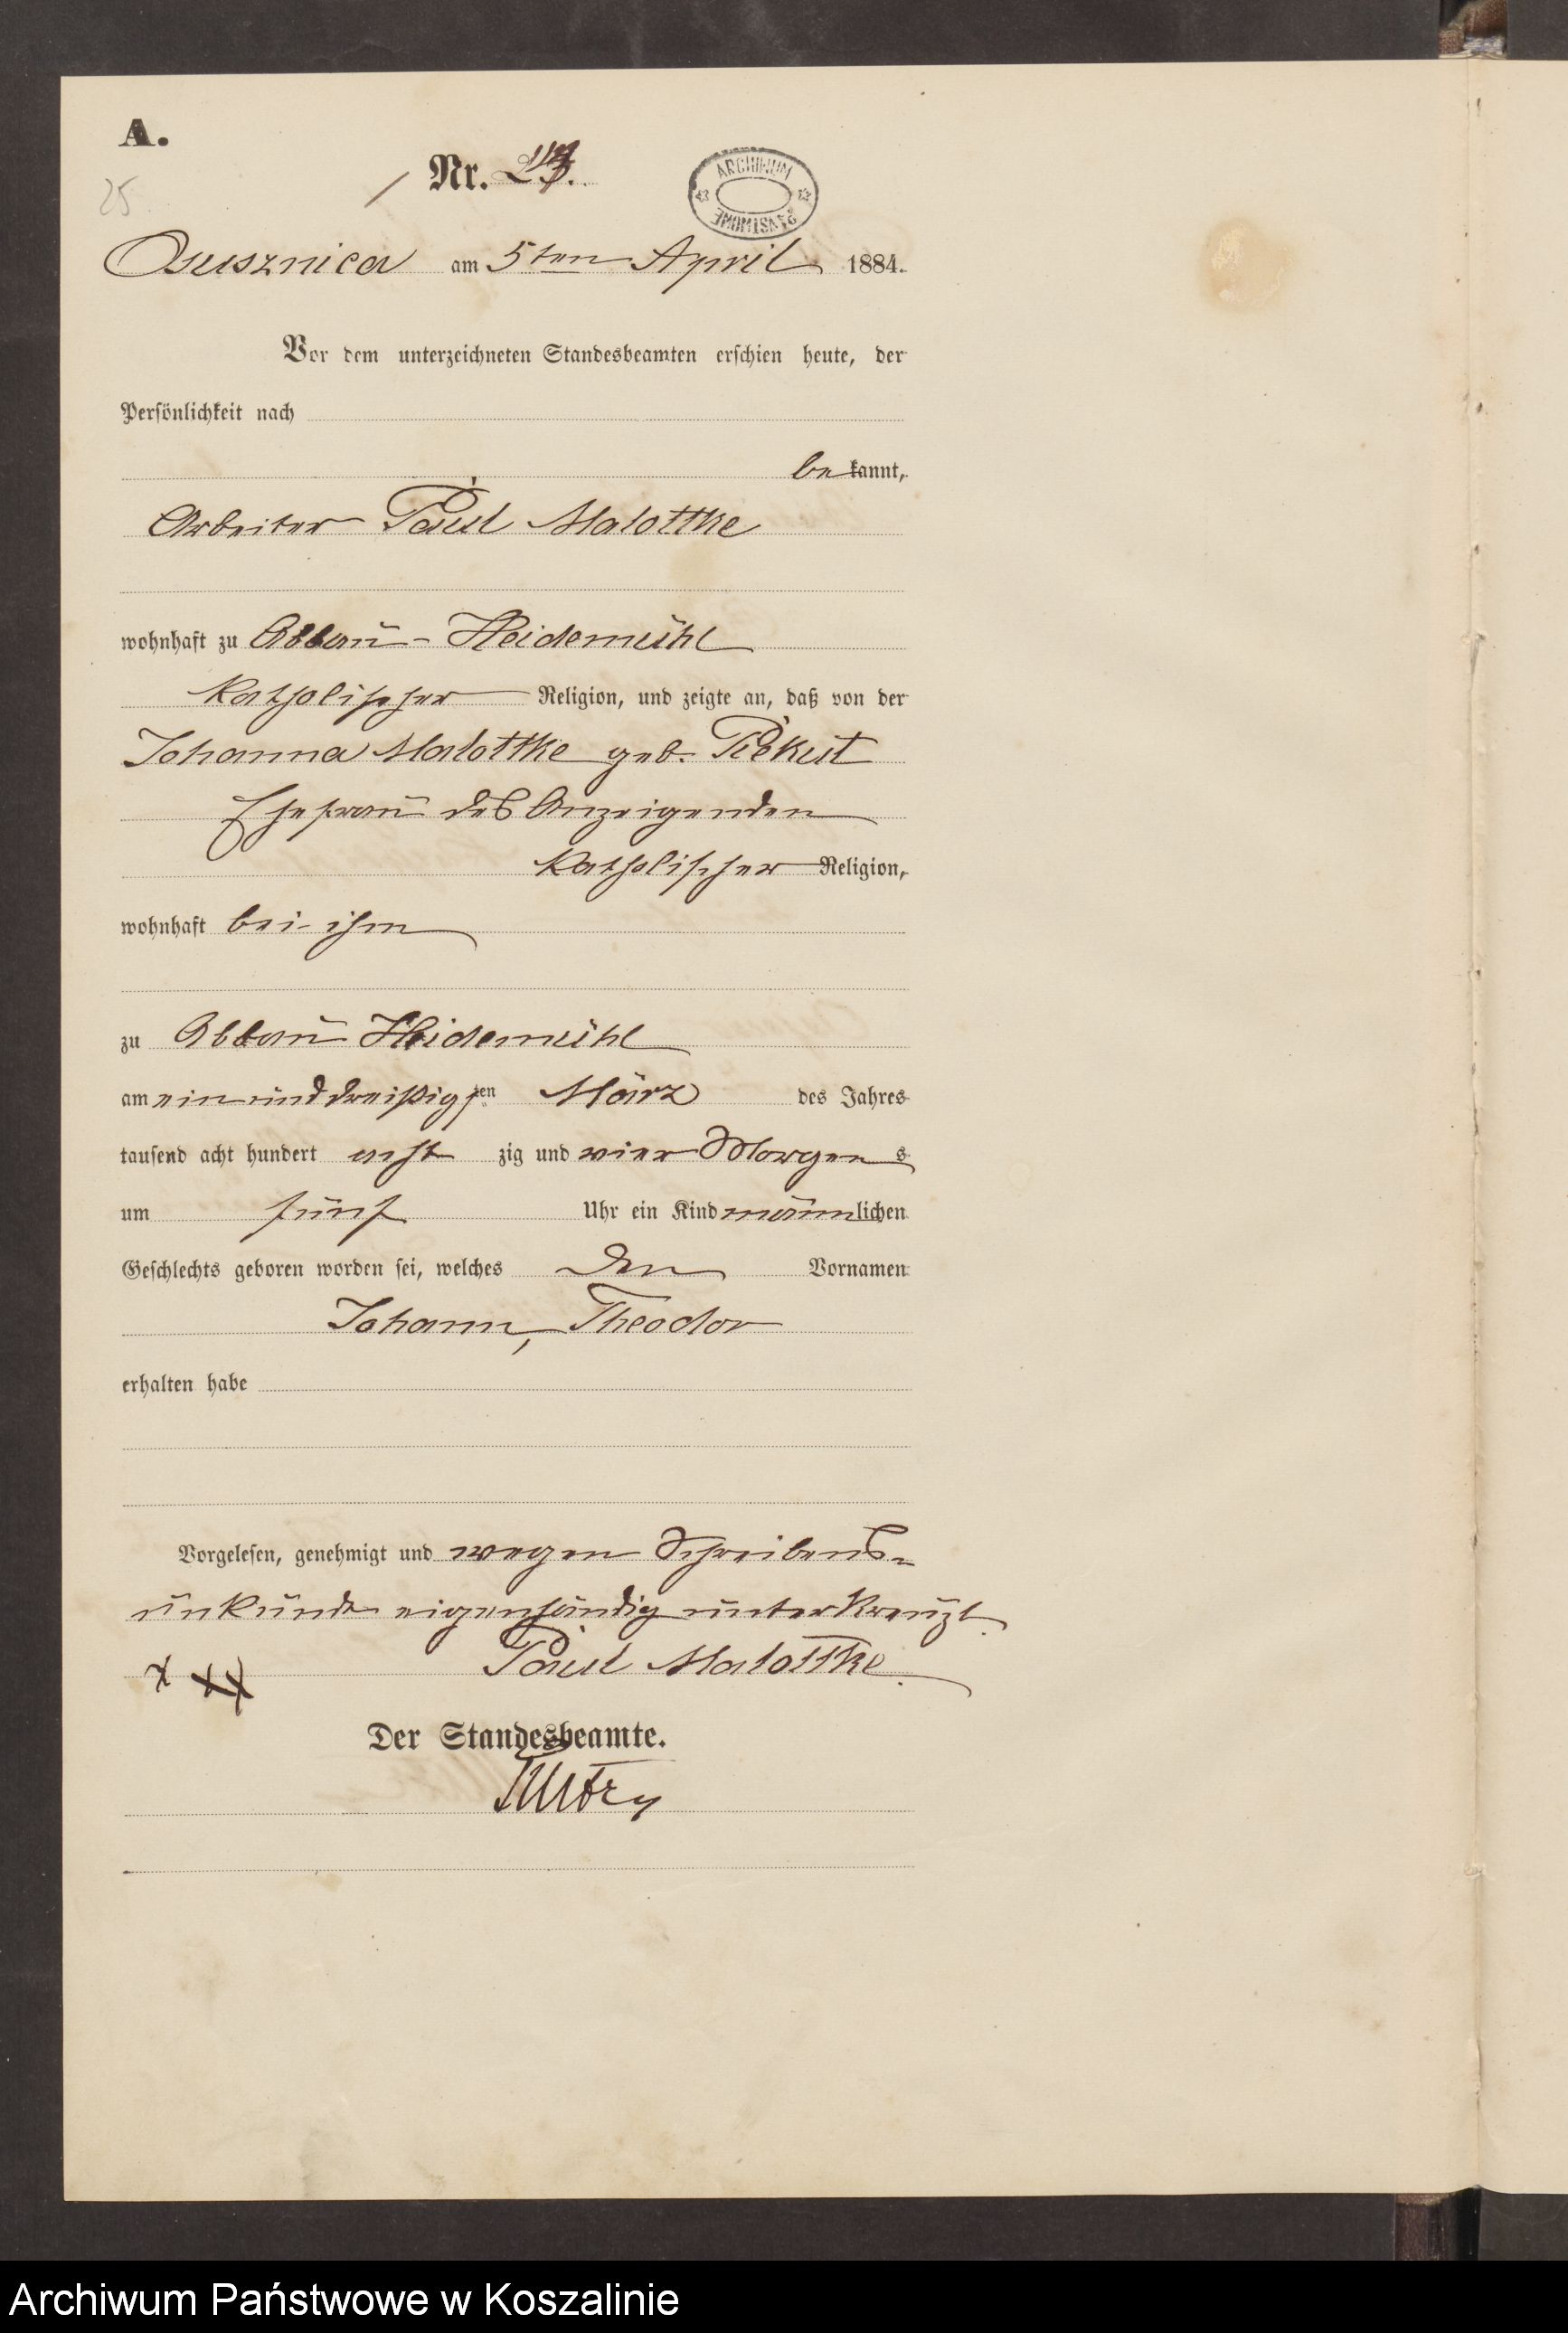 A.
Nr. 23.
25
ARCHIWUM
PAŃSTWOWE
Osusznica am 5ten April 1884.
Vor dem unterzeichneten Standesbeamten erschien heute, der
Persönlichkeit nach
bekannt,
Arbeiter Paul Malottke
wohnhaft zu Abbau-Heidemühl
katholischer Religion, und zeigte an, daß von der
Johanna Malottke geb.
Ehefrau des Anzeigenden
katholischer Religion,
wohnhaft bei ihm
zu Abbau Heidemühl
am einunddreißigsten März des Jahres
tausend acht hundert achtzig und vier Morgens
um fünf Uhr ein Kind männlichen
Geschlechts geboren worden sei, welches den Vornamen
Johann, Theodor
erhalten habe
Vorgelesen, genehmigt und wegen Schreibens-
unkunde eigenhändig unterkreuzt.
x xx Paul Malottke.
Der Standesbeamte.
Archiwum Państwowe w Koszalinie